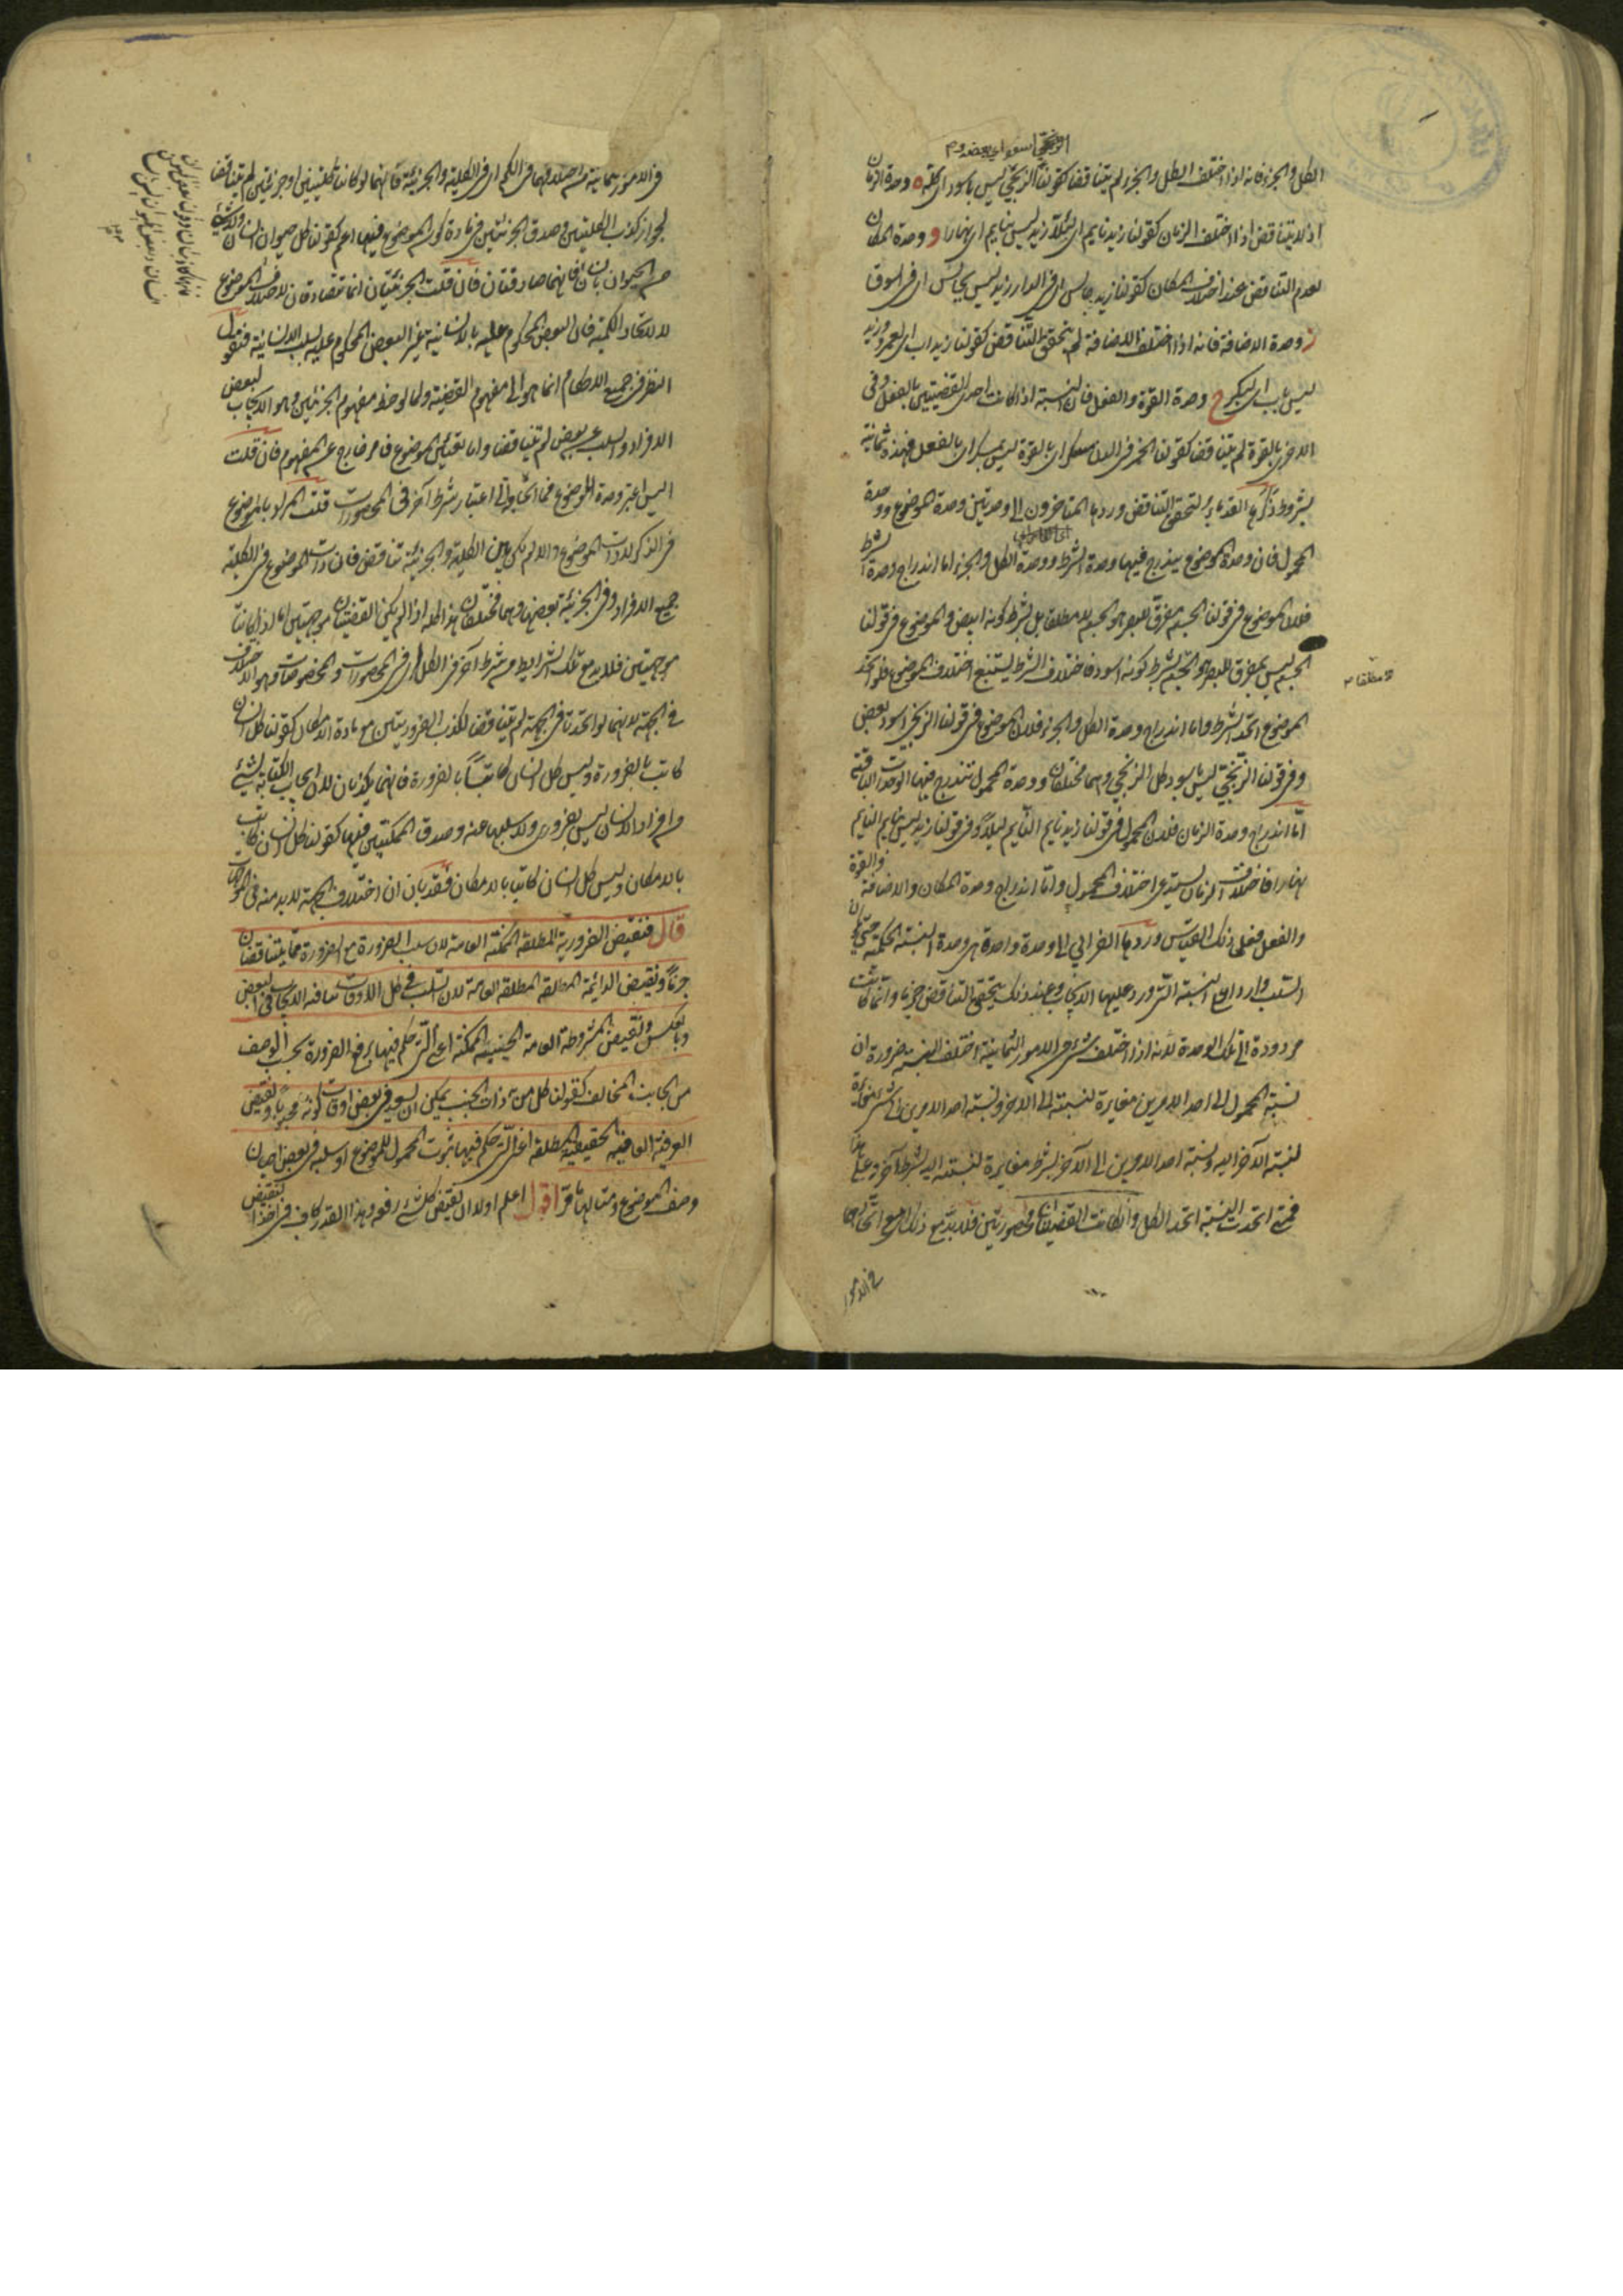 الزنجى اسود اى بعضه م
الكل والجزء فانه اذا اختلف الكل والجزء لم يتناقضا كقولنا الزنجى اسود ليس باسود اى كله ه وحدة الزمان
اذ لا يتناقض اذا اختلف الزمان كقولنا زيد نايم اى ليلا زيد ليس بنايم اى نهارا و وحدة المكان
لعدم التناقض عند اختلاف المكان كقولنا زيد جالس اى فى الدار زيد ليس بجالس اى فى السوق
ز وحدة الاضافة فانه اذا اختلف الاضافة لم يتحقق التناقض كقولنا زيد اب اى لعمرو وزيد
ليس باب اى لبكر ح وحدة القوة والفعل فان النسبة اذا كانت احدى القضيتين بالفعل وفى
الاخرى بالقوة لم يتناقضا كقولنا الخمر فى الدن مسكر اى بالقوة ليس بمسكر اى بالفعل فهذه ثمانية
شروط ذكرها القدماء لتحقق التناقض وردها المتاخرون الى وحدتين وحدة الموضوع ووحدة
المحمول فان وحدة الموضوع يندرج فيها وحدة الشرط ووحدة الكل والجزء اما اندراج وحدة الشرط
فلان الموضوع فى قولنا الجسم مفرق للبصر هو الجسم لا مطلقا بل بشرط كونه ابيض والموضوع فى قولنا
الجسم ليس بمفرق للبصر هو الجسم بشرط كونه اسود فاختلاف الشرط يستتبع اختلاف الموضوع فلو اتحد
لا مطلقا م
الموضوع اتحد الشرط واما اندراج وحدة الكل والجزء فلان الموضوع فى قولنا الزنجى اسود بعض
وفى قولنا الزنجى ليس باسود كل الزنجى وهما مختلفان ووحدة المحمول تندرج فيها الوحدات الباقية
اما اندراج وحدة الزمان فلان المحمول فى قولنا زيد نايم النايم ليلا وفى قولنا زيد ليس بنايم النايم
نهارا فاختلاف الزمان يستدعى اختلاف المحمول واما اندراج وحدة المكان والاضافة والقوة
والفعل فعلى ذلك القياس وردها الفارابى الى وحدة واحدة هى وحدة النسبة الحكمية حتى يكون
السلب واردا على النسبة التى ورد عليها الايجاب وعند ذلك يتحقق التناقض جزما وانما كانت
مردودة الى تلك الوحدة لانه اذا اختلف شئ من الامور الثمانية اختلف النسبة ضرورة ان
نسبة المحمول الى احد الامرين مغايرة لنسبته الى الاخر ونسبة احد الامرين الى شئ مغايرة
لنسبة الآخر اليه ونسبة احد الامرين الى الآخر بشرط مغايرة لنسبته اليه بشرط آخر وعلى هذا
فمتى اتحدت النسبة اتحد الكل وان كانت القضيتان محصورتين فلا بد مع ذلك مع اتحادهما
فى الامور
فى الامور الثمانية من اختلافهما فى الكم اى فى الكلية والجزئية فانهما لو كانتا كليتين او جزئيتين لم يتناقضا
لجواز كذب الكليتين وصدق الجزئيتين فى مادة يكون الموضوع فيها اعم كقولنا كل حيوان انسان ولا شئ
من الحيوان بانسان فانهما صادقتان فان قلت الجزئيتان انما تتصادقان لاختلاف الموضوع
لا لاتحاد الكمية فان البعض المحكوم عليه بالانسانية غير البعض المحكوم عليه بسلب الانسانية فنقول
النظر فى جميع الاحكام انما هو الى مفهوم القضية ولما لوحظ مفهوم الجزئيتين وهو الايجاب لبعض
الافراد والسلب عن بعض لم يتناقضا واما تعيين الموضوع فامر خارج عن المفهوم فان قلت
اليس اعتبر وحدة الموضوع فما الحاجة الى اعتبار شرط آخر فى المحصورات قلت المراد بالموضوع
فى الذكر لا ذات الموضوع والا لم يكن بين الكلية والجزئية تناقض فان ذات الموضوع فى الكلية
جميع الافراد وفى الجزئية بعضها وهما مختلفان هذا كله اذا لم يكن القضيتان موجهتين اما اذا كانتا
موجهتين فلا بد مع تلك الشرايط من شرط آخر فى الكل اى فى المحصورات والمخصوصات وهو الاختلاف
فى الجهة لانهما لو اتحدتا فى الجهة لم يتناقضا لكذب الضروريتين مع مادة الامكان كقولنا كل انسان
كاتب بالضرورة وليس كل انسان كاتبا بالضرورة فانهما يكذبان لان ايجاب الكتابة لشئ
من افراد الانسان ليس بضرورى ولا سلبها عنه وصدق الممكنتين فيها كقولنا كل انسان كاتب
بالامكان وليس كل انسان كاتبا بالامكان فقد بان ان اختلاف الجهة لا بد منه فى الموجهات
قال فنقيض الضرورية المطلقة الممكنة العامة لان سلب الضرورة مع الضرورة مما يتناقضان
جزما ونقيض الدائمة المطلقة المطلقة العامة لان السلب فى كل الاوقات ينافيه الايجاب فى البعض
وبالعكس ونقيض المشروطة العامة الحينية الممكنة اعنى التى حكم فيها برفع الضرورة بحسب الوصف
من الجانب المخالف كقولنا كل من به ذات الجنب يمكن ان يسعل فى بعض اوقات كونه مجنوبا ونقيض
العرفية العامة الحينية المطلقة اعنى التى حكم فيها بثبوت المحمول للموضوع او سلبه فى بعض احيان
وصف الموضوع ومثالها ما مر اقول اعلم اولا ان نقيض كل شئ رفعه وهذا القدر كاف فى اخذ النقيض